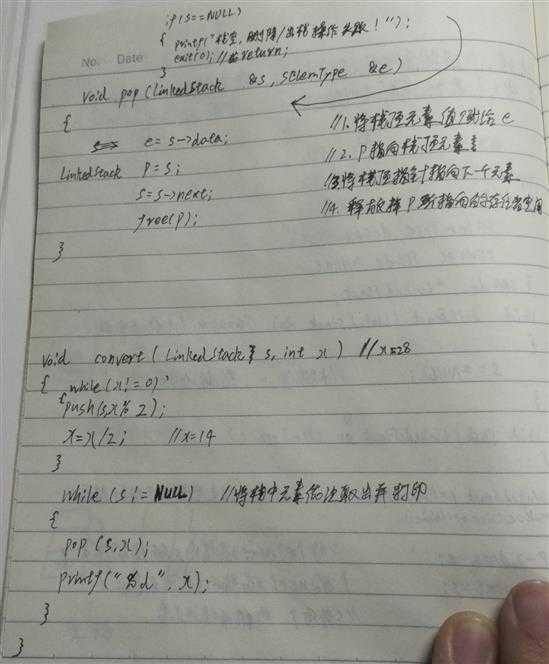 if(s==NULL)
{ printf("栈空,删除/出栈操作失败!");
No. Date exit(0); //或return;
}
void pop(LinkedStack &s, SElemType &e)
{
e=s->data; //1.将栈顶元素值赋给e
LinkedStack P=s; //2.P指向栈顶元素
s=s->next; //3.将栈顶指针指向下一个元素
free(P); //4.释放掉P所指向的存储空间
}
void convert(LinkedStack s, int x) //x=28
{ while(x!=0)
{push(s,x%2);
x=x/2; //x=14
}
while(s!=NULL) //将栈中元素依次取出并打印
{
pop(s,x);
printf("%d",x);
}
}